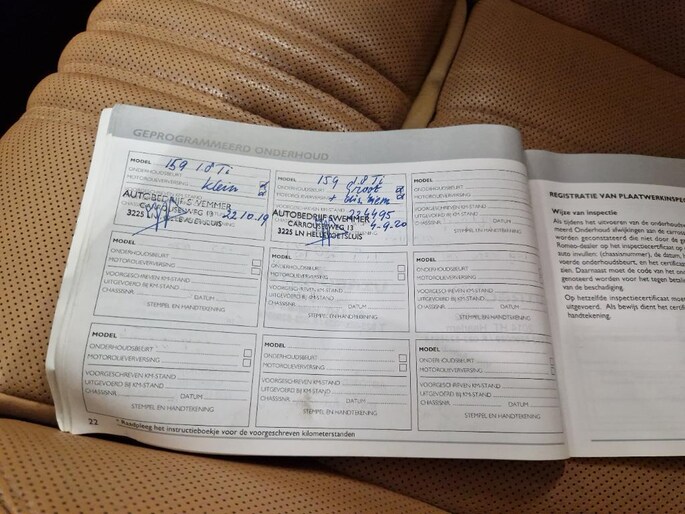 GEPROGRAMMEERD ONDERHOUD
MODEL 159 1.8 Ti
ONDERHOUDSBEURT Klein
MOTOROLIEVERVERSING
AUTOBEDRIJF SWEMMER
CARROUSELWEG 13
3225 LN HELLEVOETSLUIS
22.10.19
MODEL 159 1.8 Ti
ONDERHOUDSBEURT Groot
MOTOROLIEVERVERSING
234495
AUTOBEDRIJF SWEMMER
CARROUSELWEG 13
3225 LN HELLEVOETSLUIS
4-9-20
MODEL
ONDERHOUDSBEURT
MOTOROLIEVERVERSING
VOORGESCHREVEN KM-STAND
UITGEVOERD BIJ KM-STAND
CHASSISNR. DATUM
STEMPEL EN HANDTEKENING
MODEL
ONDERHOUDSBEURT
MOTOROLIEVERVERSING
VOORGESCHREVEN KM-STAND
UITGEVOERD BIJ KM-STAND
CHASSISNR. DATUM
STEMPEL EN HANDTEKENING
MODEL
ONDERHOUDSBEURT
MOTOROLIEVERVERSING
VOORGESCHREVEN KM-STAND
UITGEVOERD BIJ KM-STAND
CHASSISNR. DATUM
STEMPEL EN HANDTEKENING
MODEL
ONDERHOUDSBEURT
MOTOROLIEVERVERSING
VOORGESCHREVEN KM-STAND
UITGEVOERD BIJ KM-STAND
CHASSISNR. DATUM
STEMPEL EN HANDTEKENING
MODEL
ONDERHOUDSBEURT
MOTOROLIEVERVERSING
VOORGESCHREVEN KM-STAND
UITGEVOERD BIJ KM-STAND
CHASSISNR. DATUM
STEMPEL EN HANDTEKENING
MODEL
ONDERHOUDSBEURT
MOTOROLIEVERVERSING
VOORGESCHREVEN KM-STAND
UITGEVOERD BIJ KM-STAND
CHASSISNR. DATUM
STEMPEL EN HANDTEKENING
MODEL
ONDERHOUDSBEURT
MOTOROLIEVERVERSING
VOORGESCHREVEN KM-STAND
UITGEVOERD BIJ KM-STAND
CHASSISNR. DATUM
STEMPEL EN HANDTEKENING
22
* Raadpleeg het instructieboekje voor de voorgeschreven kilometerstanden
REGISTRATIE VAN PLAATWERKINSPE
Wijze van inspectie
Als tijdens het uitvoeren van de onderhouds
meerd Onderhoud afwijkingen aan de carros
worden geconstateerd die niet door de g
Romeo-dealer op het inspectiecertificaat op
auto invullen: (chassisnummer), de datum, h
voerde onderhoudsbeurt, en het certifica
zien. Daarnaast moet de code van het ond
genoteerd worden voor het tegen betali
van de beschadiging.
Op hetzelfde inspectiecertificaat moe
uitgevoerd. Als bewijs dient het certif
handtekening.